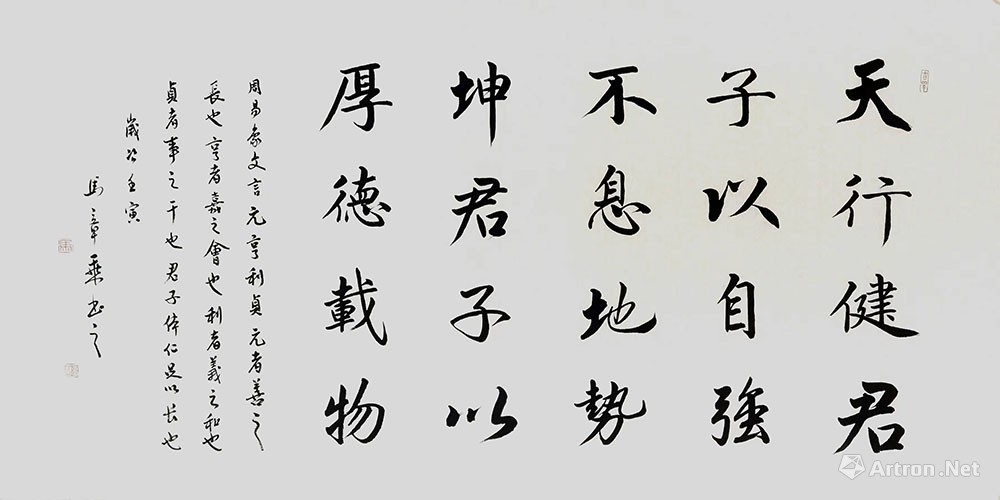 天行健君
子以自強
不息地勢
坤君子以
厚德載物
周易象文言元亨利貞元者善之
長也亨者嘉之會也利者義之和也
貞者事之干也君子体仁足以长也
歲次壬寅
馬章乘书之
Artron.Net